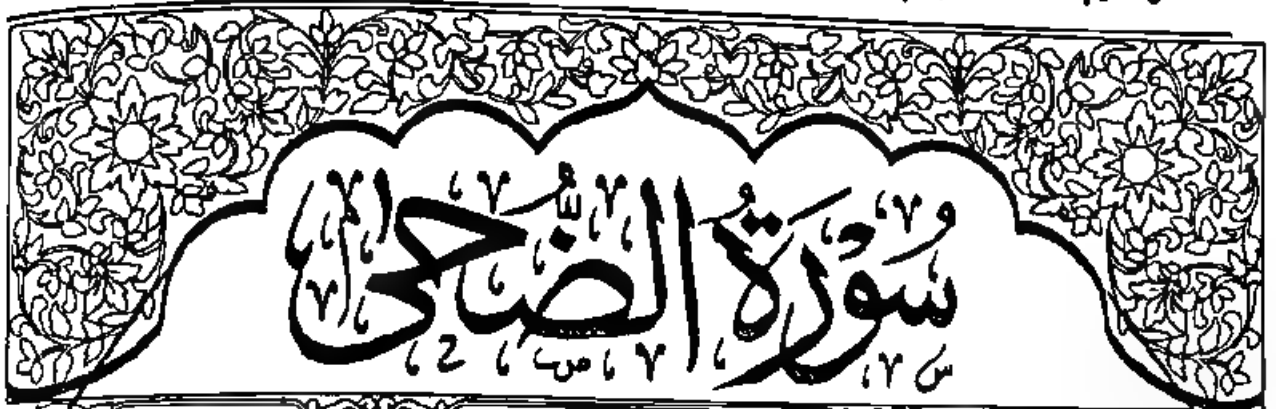 سُورَةُ الضُّحَىٰ